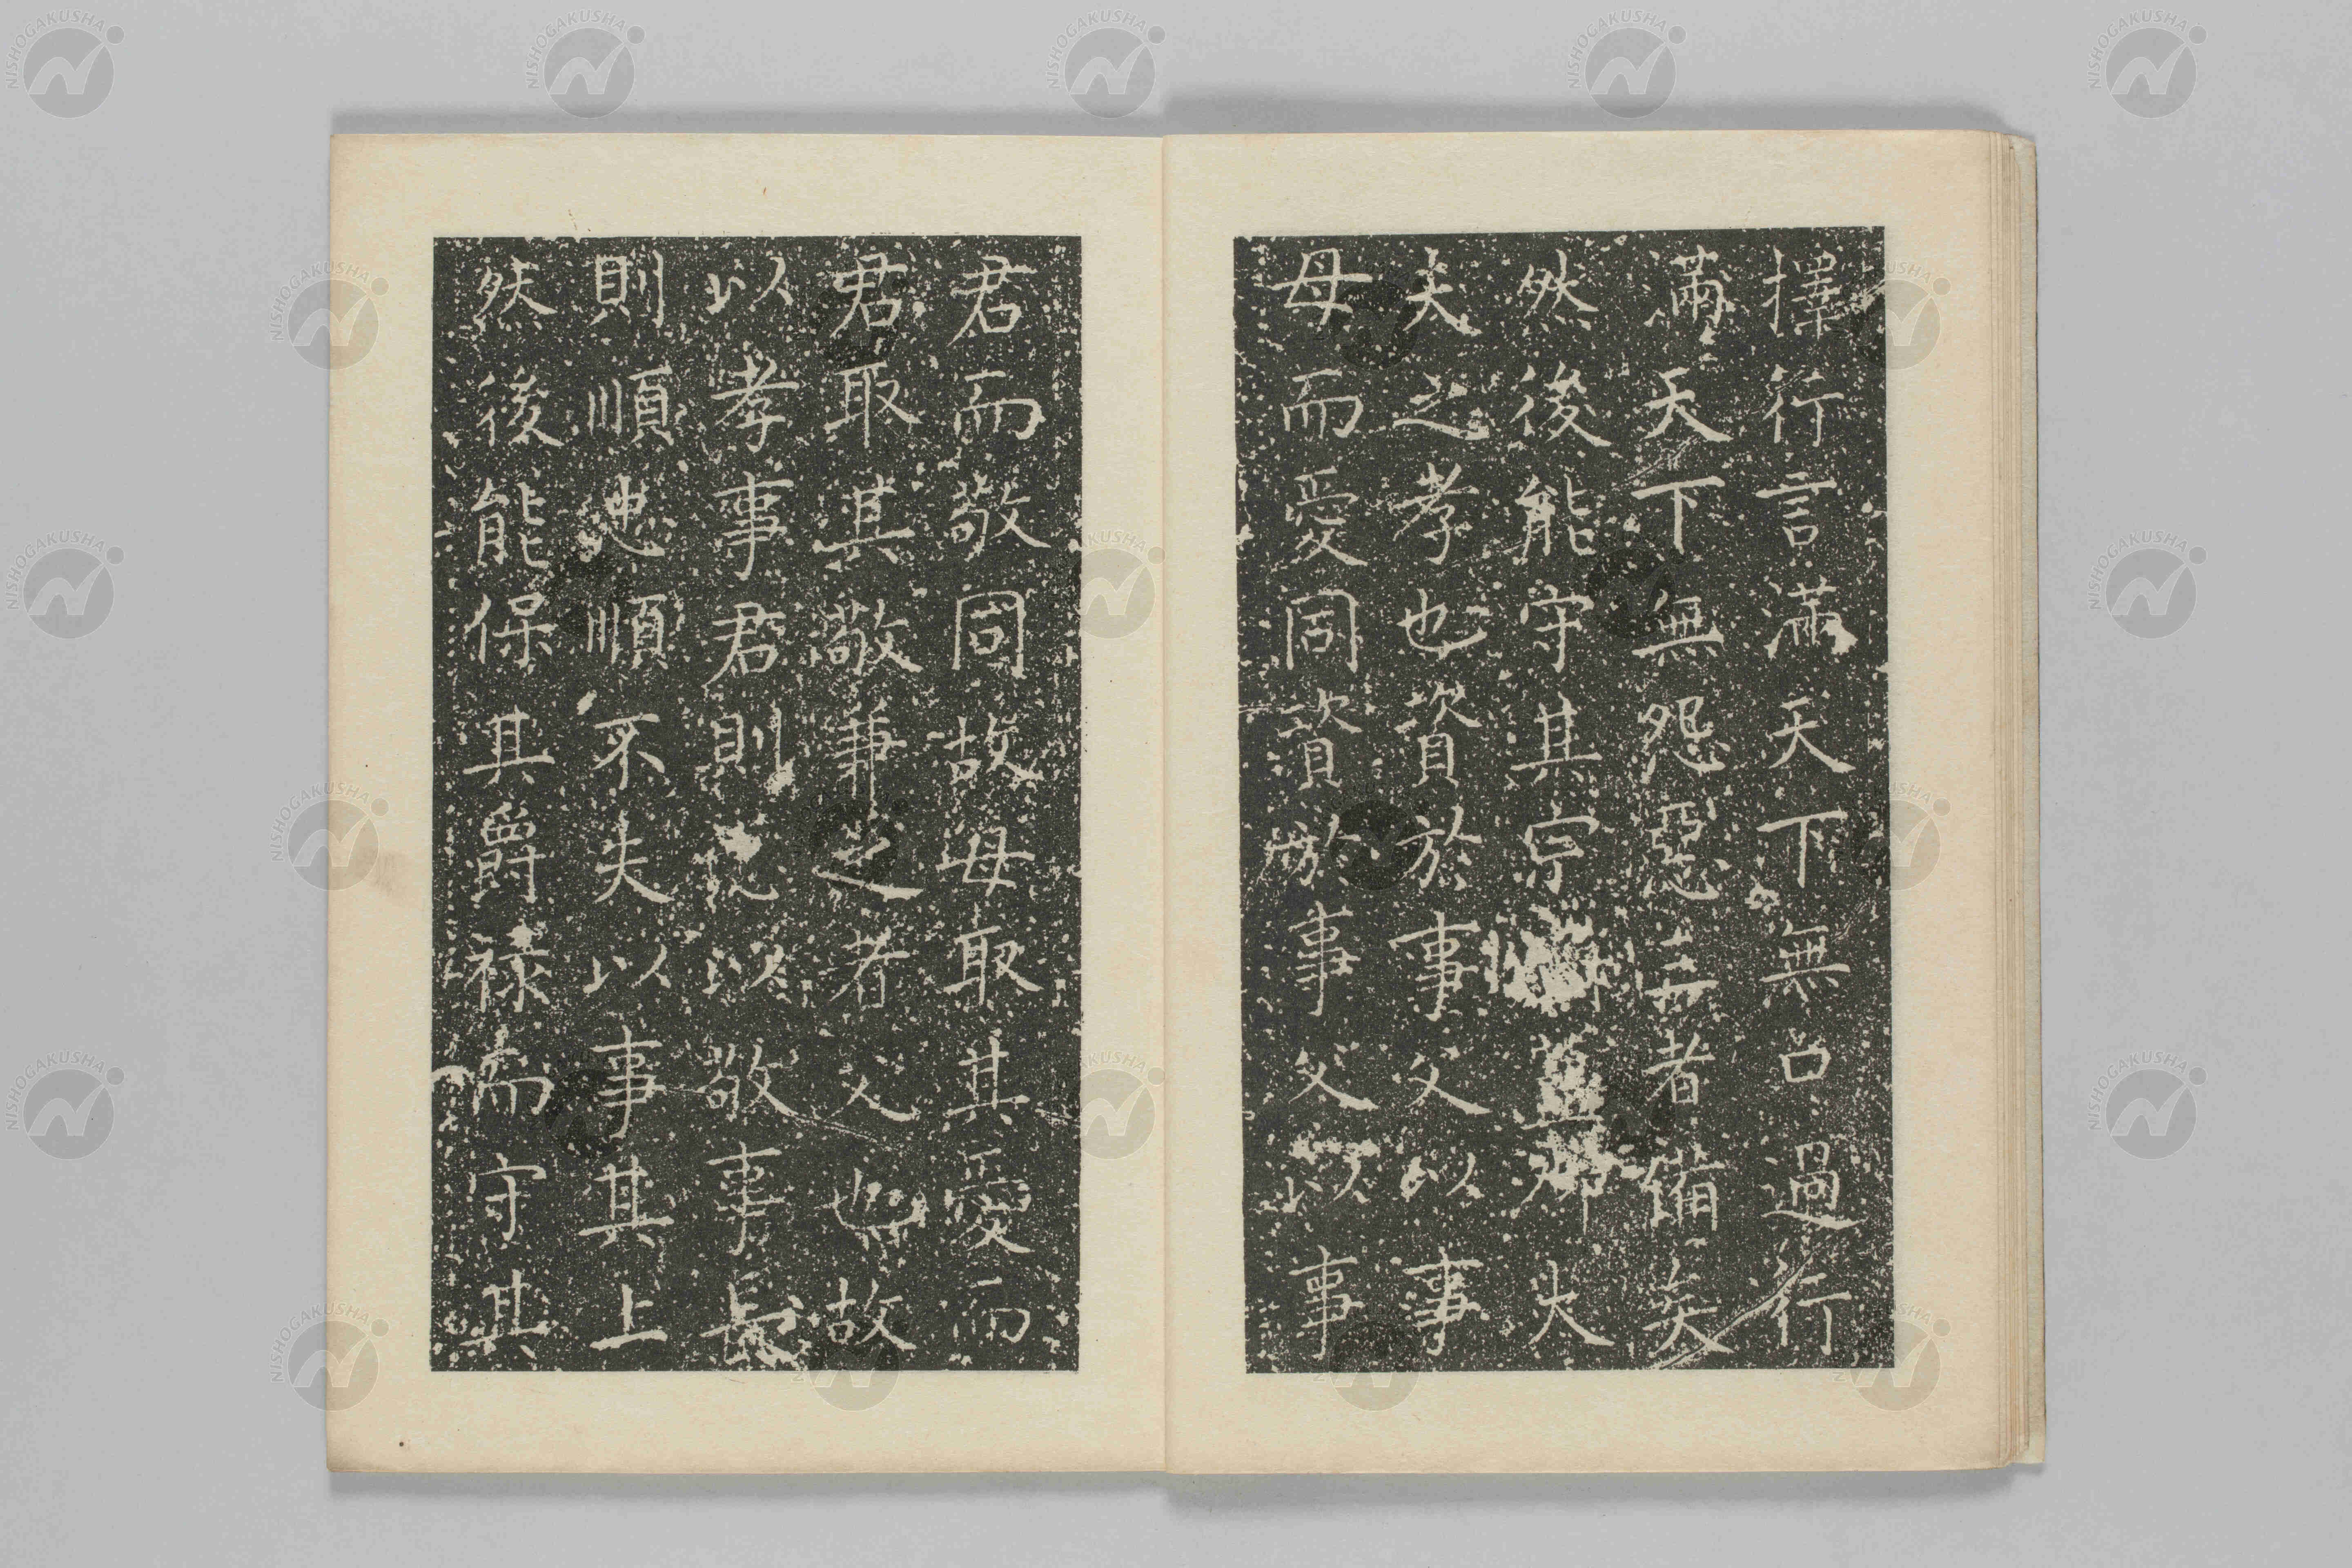 擇行言滿天下無口過行
滿天下無怨惡三者備矣
然後能守其宗廟蓋卿大
夫之孝也資於事父以事
母而愛同資於事父以事
君而敬同故母取其愛而
君取其敬兼之者父也故
以孝事君則忠以敬事長
則順忠順不失以事其上
然後能保其爵禄而守其
NISHOGAKUSHA